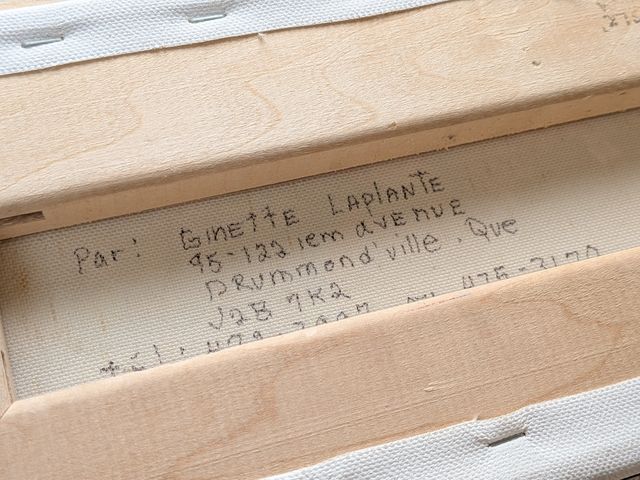 Par: Ginette Laplante
95-122 ièm avenue
Drummond'ville, Que
J2B 7K2
tél: